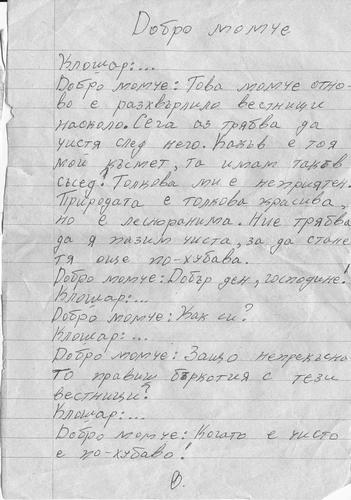 Добро момче
Клошар:...
Добро момче: Това момче отно-
во е разхвърлило вестници
наоколо. Сега аз трябва да
чистя след него. Какъв е тоя
мой късмет, та имам такъв
съсед! Толкова ми е неприятен.
Природата е толкова красива,
но е лесноранима. Ние трябва
да я пазим чиста, за да стане
тя още по-хубава.
Добро момче: Добър ден, господине!
Клошар:...
Добро момче: Как си?
Клошар:...
Добро момче: Защо непрекъсна
то правиш бъркотия с тези
вестници?
Клошар:...
Добро момче: Когато е чисто
е по-хубаво!